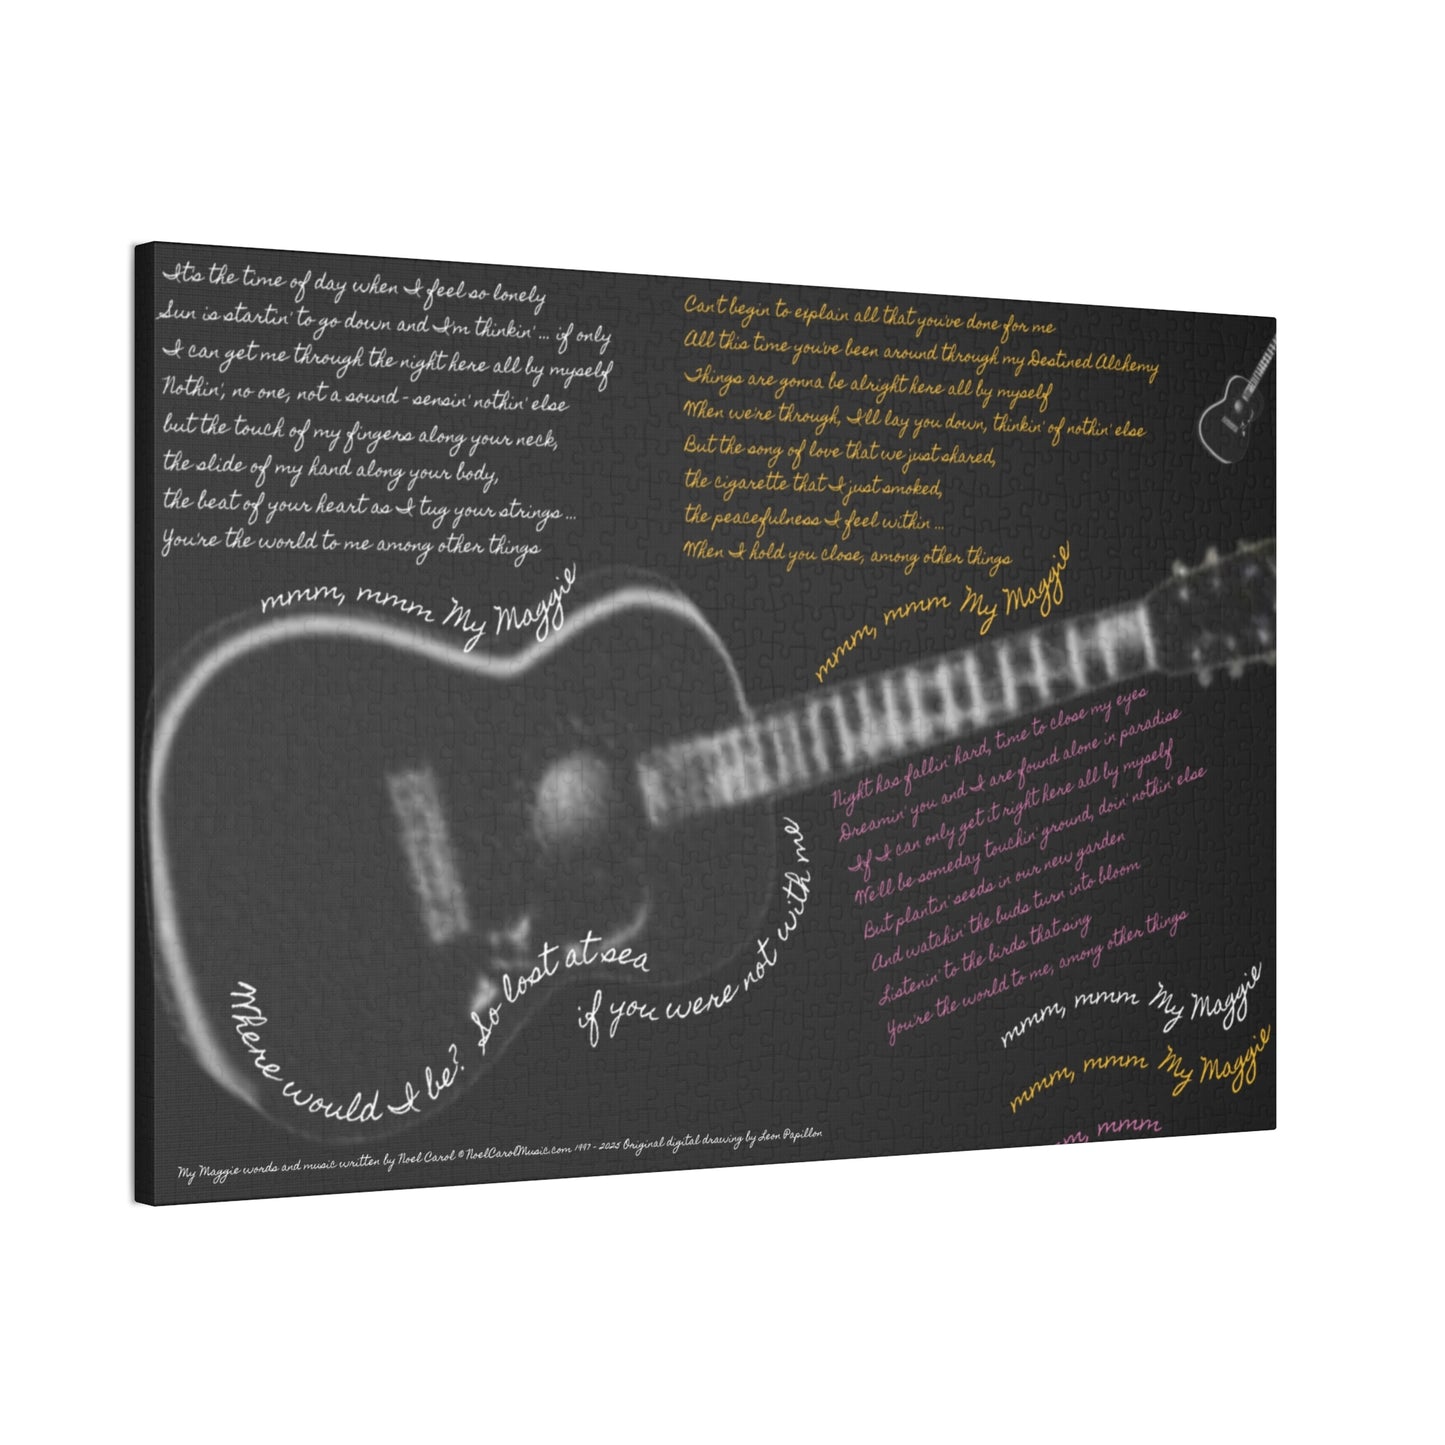 It's the time of day when I feel so lonely
Sun is startin' to go down and I'm thinkin' ... if only
I can get me through the night here all by myself
Nothin', no one, not a sound - sensin' nothin' else
but the touch of my fingers along your neck,
the slide of my hand along your body,
the beat of your heart as I tug your strings ...
You're the world to me among other things
mmm, mmm My Maggie
Can't begin to explain all that you've done for me
All this time you've been around through my Destined Alchemy
Things are gonna be alright here all by myself
When we're through, I'll lay you down, thinkin' of nothin' else
But the song of love that we just shared,
the cigarette that I just smoked,
the peacefulness I feel within ...
When I hold you close, among other things
mmm, mmm My Maggie
Night has fallin' hard, time to close my eyes
Dreamin' you and I are found alone in paradise
If I can only get it right here all by myself
We'll be someday touchin' ground, doin' nothin' else
But plantin' seeds in our new garden
And watchin' the buds turn into bloom
Listenin' to the birds that sing
You're the world to me, among other things
Where would I be? So lost at sea
if you were not with me
mmm, mmm My Maggie
mmm, mmm My Maggie
mmm
My Maggie words and music written by Noel Carol © NoelCarolMusic.com 1997 - 2025 Original digital drawing by Leon Papillon